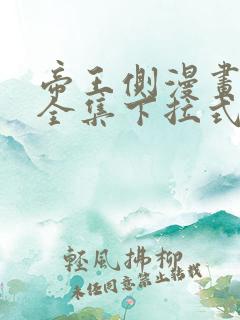 帝王側漫畫
全集下拉式
輕風拂柳
未经同意禁止转载